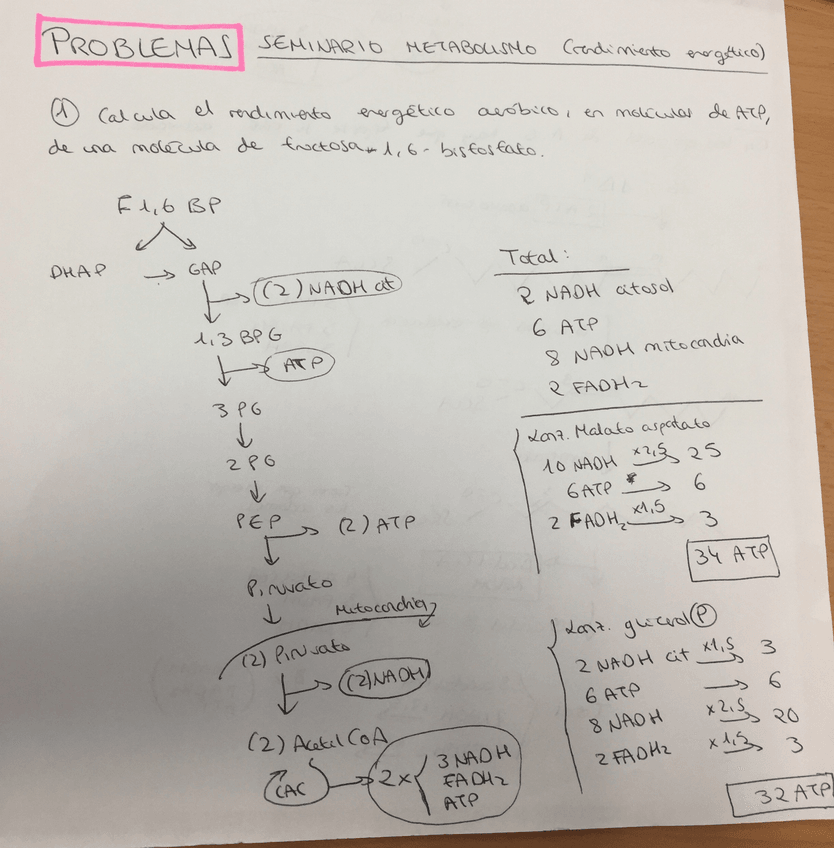 PROBLEMAS SEMINARIO METABOLISMO (rendimiento energético)
① Calcula el rendimiento energético aeróbico, en moléculas de ATP,
de una molécula de fructosa-1,6-bisfosfato.
F 1,6 BP
DHAP → GAP
(2) NADH cit
1,3 BPG
ATP
3 PG
2 PG
PEP → (2) ATP
Piruvato
Mitocondria
(2) Piruvato
(2) NADH
(2) Acetil CoA
CAC → 2x { 3 NADH
FADH2
ATP
Total:
2 NADH citosol
6 ATP
8 NADH mitocondria
2 FADH2
Lanz. Malato aspartato
10 NADH x2,5 → 25
6 ATP → 6
2 FADH2 x1,5 → 3
34 ATP
Lanz. glicerol Ⓟ
2 NADH cit x1,5 → 3
6 ATP → 6
8 NADH x2,5 → 20
2 FADH2 x1,5 → 3
32 ATP